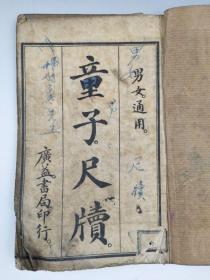 男女。通用。
童子。尺牘。
廣益書局印行。
男
尺牘